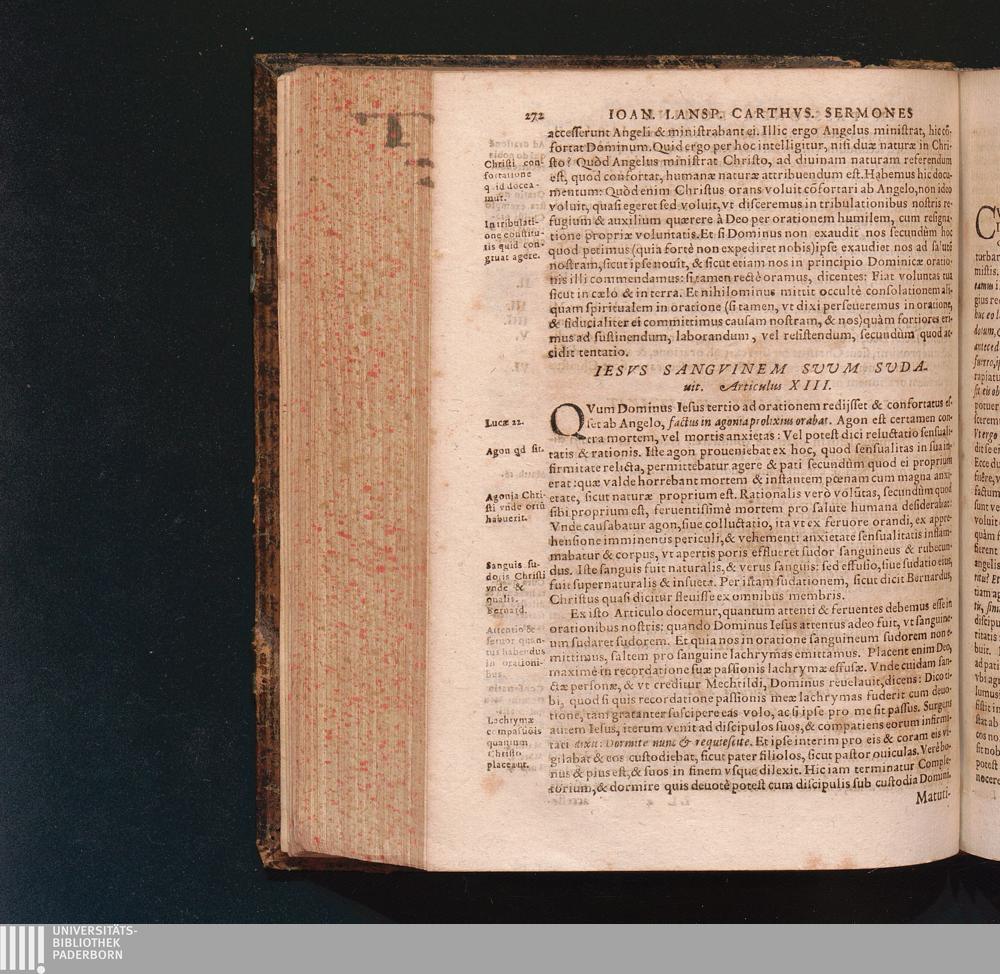 272 IOAN. LANSP. CARTHVS. SERMONES
accesserunt Angeli & ministrabant ei. Illic ergo Angelus ministrat, hic cō-
fortat Dominum. Quid ergo per hoc intelligitur, nisi duæ naturæ in Chri-
sto? Quòd Angelus ministrat Christo, ad diuinam naturam referendum
est, quod confortat, humanæ naturæ attribuendum est. Habemus hic docu-
mentum: Quòd enim Christus orans voluit cōfortari ab Angelo, non ideo
voluit, quasi egeret sed voluit, vt disceremus in tribulationibus nostris re-
fugium & auxilium quærere à Deo per orationem humilem, cum resigna-
tione propriæ voluntatis. Et si Dominus non exaudit nos secundùm hoc
quod petimus (quia fortè non expediret nobis) ipse exaudiet nos ad salutē
nostram, sicut ipse nouit, & sicut etiam nos in principio Dominicæ oratio-
nis illi commendamus: si tamen rectè oramus, dicentes: Fiat voluntas tua
sicut in cælo & in terra. Et nihilominus mittit occultè consolationem ali-
quam spiritualem in oratione (si tamen, vt dixi perseueremus in oratione,
& fiducialiter ei committimus causam nostram, & nos) quàm fortiores eri-
mus ad sustinendum, laborandum, vel resistendum, secundùm quod ac-
cidit tentatio.
Christi con-
fortatione
quid docea-
mur.
In tribulati-
one constitu-
tis quid con-
gruat agere.
IESVS SANGVINEM SVVM SVDA-
uit. Articulus XIII.
QVum Dominus Iesus tertio ad orationem redijsset & confortatus es-
set ab Angelo, factus in agonia prolixius orabat. Agon est certamen con-
tra mortem, vel mortis anxietas: Vel potest dici reluctatio sensuali-
tatis & rationis. Iste agon proueniebat ex hoc, quod sensualitas in sua in-
firmitate relicta, permittebatur agere & pati secundùm quod ei proprium
erat: quæ valde horrebant mortem & instantem pœnam cum magna anxi-
etate, sicut naturæ proprium est. Rationalis verò volūtas, secundùm quod
sibi proprium est, feruentissimè mortem pro salute humana desiderabat:
Vnde causabatur agon, siue colluctatio, ita vt ex feruore orandi, ex appre-
hensione imminentis periculi, & vehementi anxietate sensualitatis inflam-
mabatur & corpus, vt apertis poris efflueret sudor sanguineus & rubecun-
dus. Iste sanguis fuit naturalis, & verus sanguis: sed effusio, siue sudatio eius,
fuit supernaturalis & insueta. Per istam sudationem, sicut dicit Bernardus,
Christus quasi dicitur fleuisse ex omnibus membris.
Ex isto Articulo docemur, quantum attenti & feruentes debemus esse in
orationibus nostris: quando Dominus Iesus attentus adeo fuit, vt sanguine-
um sudaret sudorem. Et quia nos in oratione sanguineum sudorem non e-
mittimus, saltem pro sanguine lachrymas emittamus. Placent enim Deo,
maximè in recordatione suæ passionis lachrymæ effusæ. Vnde cuidam san-
ctæ personæ, & vt creditur Mechtildi, Dominus reuelauit, dicens: Dico ti-
bi, quod si quis recordatione passionis meæ lachrymas fuderit cum deuo-
tione, tam gratanter suscipere eas volo, ac si ipse pro me sit passus. Surgens
autem Iesus, iterum venit ad discipulos suos, & compatiens eorum infirmi-
tati dixit: Dormite nunc & requiescite. Et ipse interim pro eis & coram eis vi-
gilabat & eos custodiebat, sicut pater filiolos, sicut pastor ouiculas. Verè bo-
nus & pius est, & suos in finem vsque dilexit. Hic iam terminatur Comple-
torium, & dormire quis deuotè potest cum discipulis sub custodia Domini.
Matuti-
Lucæ 22.
Agon qd sit.
Agonia Chri-
sti vnde ortū
habuerit.
Sanguis su-
doris Christi
vnde &
qualis.
Bernard.
Attentio &
feruor quan-
tus habendus
in orationi-
bus.
Lachrymæ
compassiōis
quantum
Christo
placeant.
UNIVERSITÄTS-
BIBLIOTHEK
PADERBORN